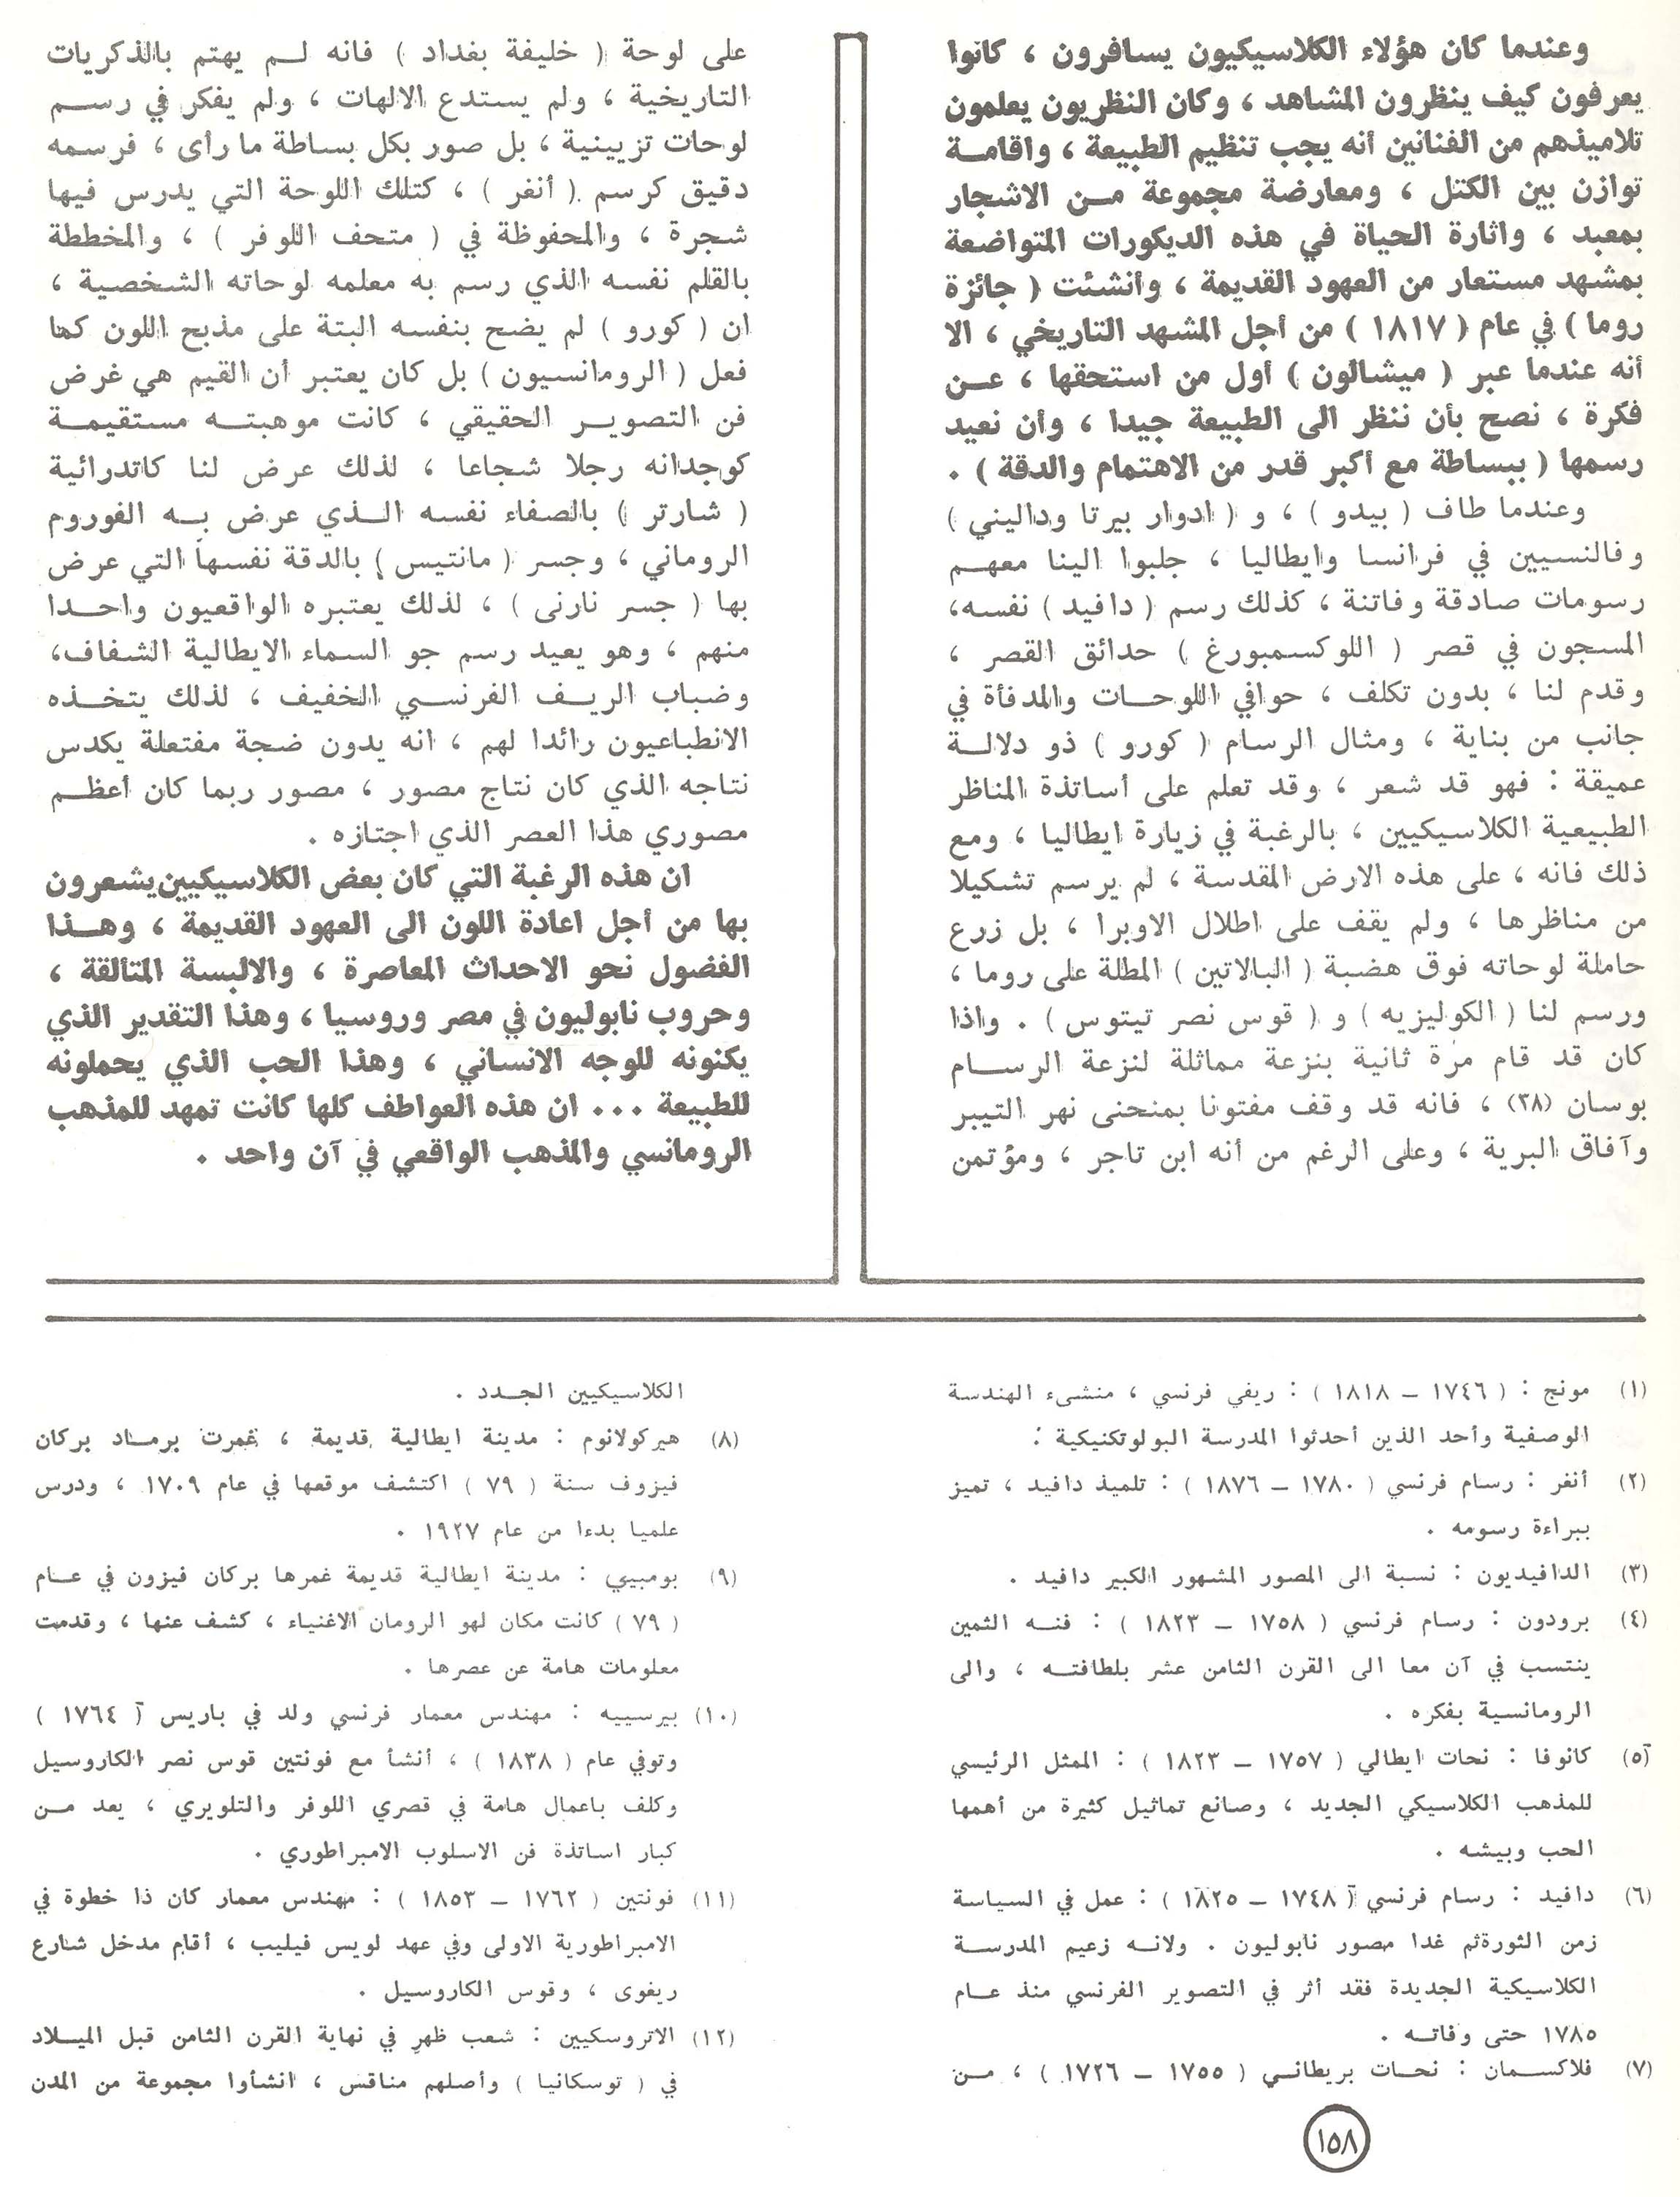 وعندما كان هؤلاء الكلاسيكيون يسافرون ، كانوا
يعرفون كيف ينظرون المشاهد ، وكان النظريون يعلمون
تلاميذهم من الفنانين أنه يجب تنظيم الطبيعة ، واقامــة
توازن بين الكتل ، ومعارضة مجموعة مــن الاشجار
بمعبد ، واثارة الحياة في هذه الديكورات المتواضعة
بمشهد مستعار من العهود القديمة ، وأنشئت ( جائزة
روما ) في عام ( ١٨١٧ ) من أجل المشهد التاريخي ، الا
أنه عندما عبر ( ميشالون ) أول من استحقها ، عــن
فكرة ، نصح بأن ننظر الى الطبيعة جيدا ، وأن نعيد
رسمها ( ببساطة مع أكبر قدر من الاهتمام والدقة ) .
وعندما طاف ( بيدو ) ، و ( ادوار بيرتا وداليني )
وفالنسيين في فرانسا وايطاليا ، جلبوا الينا معهــم
رسومات صادقة وفاتنة ، كذلك رسم ( دافيد ) نفسه،
المسجون في قصر ( اللوكسمبورغ ) حدائق القصر ،
وقدم لنا ، بدون تكلف ، حوافي اللوحــات والمدفأة في
جانب من بناية ، ومثال الرسام ( كورو ) ذو دلالــة
عميقة : فهو قد شعر ، وقد تعلم على أساتذة المناظر
الطبيعية الكلاسيكيين ، بالرغبة في زيارة ايطاليا ، ومع
ذلك فانه ، على هذه الارض المقدسة ، لم يرسم تشكيلا
من مناظرها ، ولم يقف على اطلال الاوبرا ، بل زرع
حاملة لوحاته فوق هضبة ( البالاتين ) المطلة على روما ،
ورسم لنا ( الكوليزيه ) و ( قوس نصر تيتوس ) . واذا
كان قد قام مرة ثانية بنزعة مماثلة لنزعة الرســام
بوسان (٣٨) ، فانه قد وقف مفتونا بمنحنى نهر التيبر
وآفاق البرية ، وعلى الرغم من أنه ابن تاجر ، ومؤتمن
على لوحة ( خليفة بغداد ) فانه لــم يهتم بالذكريات
التاريخية ، ولم يستدع الالهات ، ولم يفكر في رســم
لوحات تزيينية ، بل صور بكل بساطة ما رأى ، فرسمه
دقيق كرسم ( أنغر ) ، كتلك اللوحة التي يدرس فيها
شجرة ، والمحفوظة في ( متحف اللوفر ) ، والمخططة
بالقلم نفسه الذي رسم به معلمه لوحاته الشخصية ،
ان ( كورو ) لم يضح بنفسه البتة على مذبح اللون كما
فعل ( الرومانسيون ) بل كان يعتبر أن القيم هي غرض
فن التصويــر الحقيقي ، كانت موهبتــه مستقيمــة
كوجدانه رجلا شجاعا ، لذلك عرض لنا كاتدرائية
( شارتر ) بالصفاء نفسه الــذي عرض بــه الفوروم
الروماني ، وجسر ( مانتيس ) بالدقة نفسها التي عرض
بها ( جسر نارنى ) ، لذلك يعتبره الواقعيون واحــدا
منهم ، وهو يعيد رسم جو السماء الايطالية الشفاف،
وضباب الريــف الفرنســي الخفيف ، لذلك يتخــذه
الانطباعيون رائدا لهم ، انه بدون ضجة مفتعلة يكدس
نتاجه الذي كان نتاج مصور ، مصور ربما كان أعظــم
مصوري هذا العصر الذي اجتازه .
ان هذه الرغبة التي كان بعض الكلاسيكيين يشعرون
بها من أجل اعادة اللون الى العهود القديمة ، وهــذا
الفضول نحو الاحداث المعاصرة ، والالبسة المتألقة ،
وحروب نابوليون في مصر وروسيا ، وهذا التقدير الذي
يكنونه للوجه الانساني ، وهذا الحب الذي يحملونه
للطبيعة ... ان هذه العواطف كلها كانت تمهد للمذهب
الرومانسي والمذهب الواقعي في آن واحد .
(١) مونج : ( ١٧٤٦ – ١٨١٨ ) : ريفي فرنسي ، منشىء الهندسة
الوصفية وأحد الذين أحدثوا المدرسة البولوتكنيكية .
(٢) أنغر : رسام فرنسي ( ١٧٨٠ – ١٨٧٦ ) : تلميذ دافيد ، تميز
ببراءة رسومه .
(٣) الدافيديون : نسبة الى المصور المشهور الكبير دافيد .
(٤) برودون : رسام فرنسي ( ١٧٥٨ – ١٨٢٣ ) : فنــه الثمين
ينتسب في آن معا الى القرن الثامن عشر بلطافتــه ، والى
الرومانسية بفكره .
(٥) كانوفا : نحات ايطالي ( ١٧٥٧ – ١٨٢٣ ) : الممثل الرئيسي
للمذهب الكلاسيكي الجديد ، وصانع تماثيل كثيرة من أهمها
الحب وبيشه .
(٦) دافيد : رسام فرنسي ( ١٧٤٨ – ١٨٢٥ ) : عمل في السياسة
زمن الثورة ثم غدا مصور نابوليون . ولانــه زعيم المدرســة
الكلاسيكية الجديدة فقد أثر في التصوير الفرنسي منذ عــام
١٧٨٥ حتى وفاتــه .
(٧) فلاكســمان : نحــات بريطانــي ( ١٧٥٥ – ١٧٢٦ ) ، مــن
الكلاسيكيين الجــدد .
(٨) هيركولانوم : مدينة ايطالية قديمة ، غمرت برمــاد بركان
فيزوف سنة ( ٧٩ ) اكتشف موقعها في عام ١٧٠٩ ، ودرس
علميا بدءا من عام ١٩٢٧ .
(٩) بومبيي : مدينة ايطالية قديمة غمرها بركان فيزون في عــام
( ٧٩ ) كانت مكان لهو الرومان الاغنياء ، كشف عنها ، وقدمت
معلومات هامة عن عصرها .
(١٠) بيرسييه : مهندس معمار فرنسي ولد في باريس ( ١٧٦٤ )
وتوفي عام ( ١٨٣٨ ) ، أنشأ مع فونتين قوس نصر الكاروسيل
وكلف باعمال هامة في قصري اللوفر والتلويري ، يعد مــن
كبار اساتذة فن الاسلوب الامبراطوري .
(١١) فونتين ( ١٧٦٢ – ١٨٥٣ ) : مهندس معمار كان ذا خطوة في
الامبراطورية الاولى وفي عهد لويس فيليب ، أقام مدخل شارع
ريفوى ، وقوس الكاروسيل .
(١٢) الاتروسكيين : شعب ظهر في نهاية القرن الثامن قبل الميــلاد
في ( توسكانيا ) وأصلهم مناقس ، انشأوا مجموعة من المدن
١٥٨